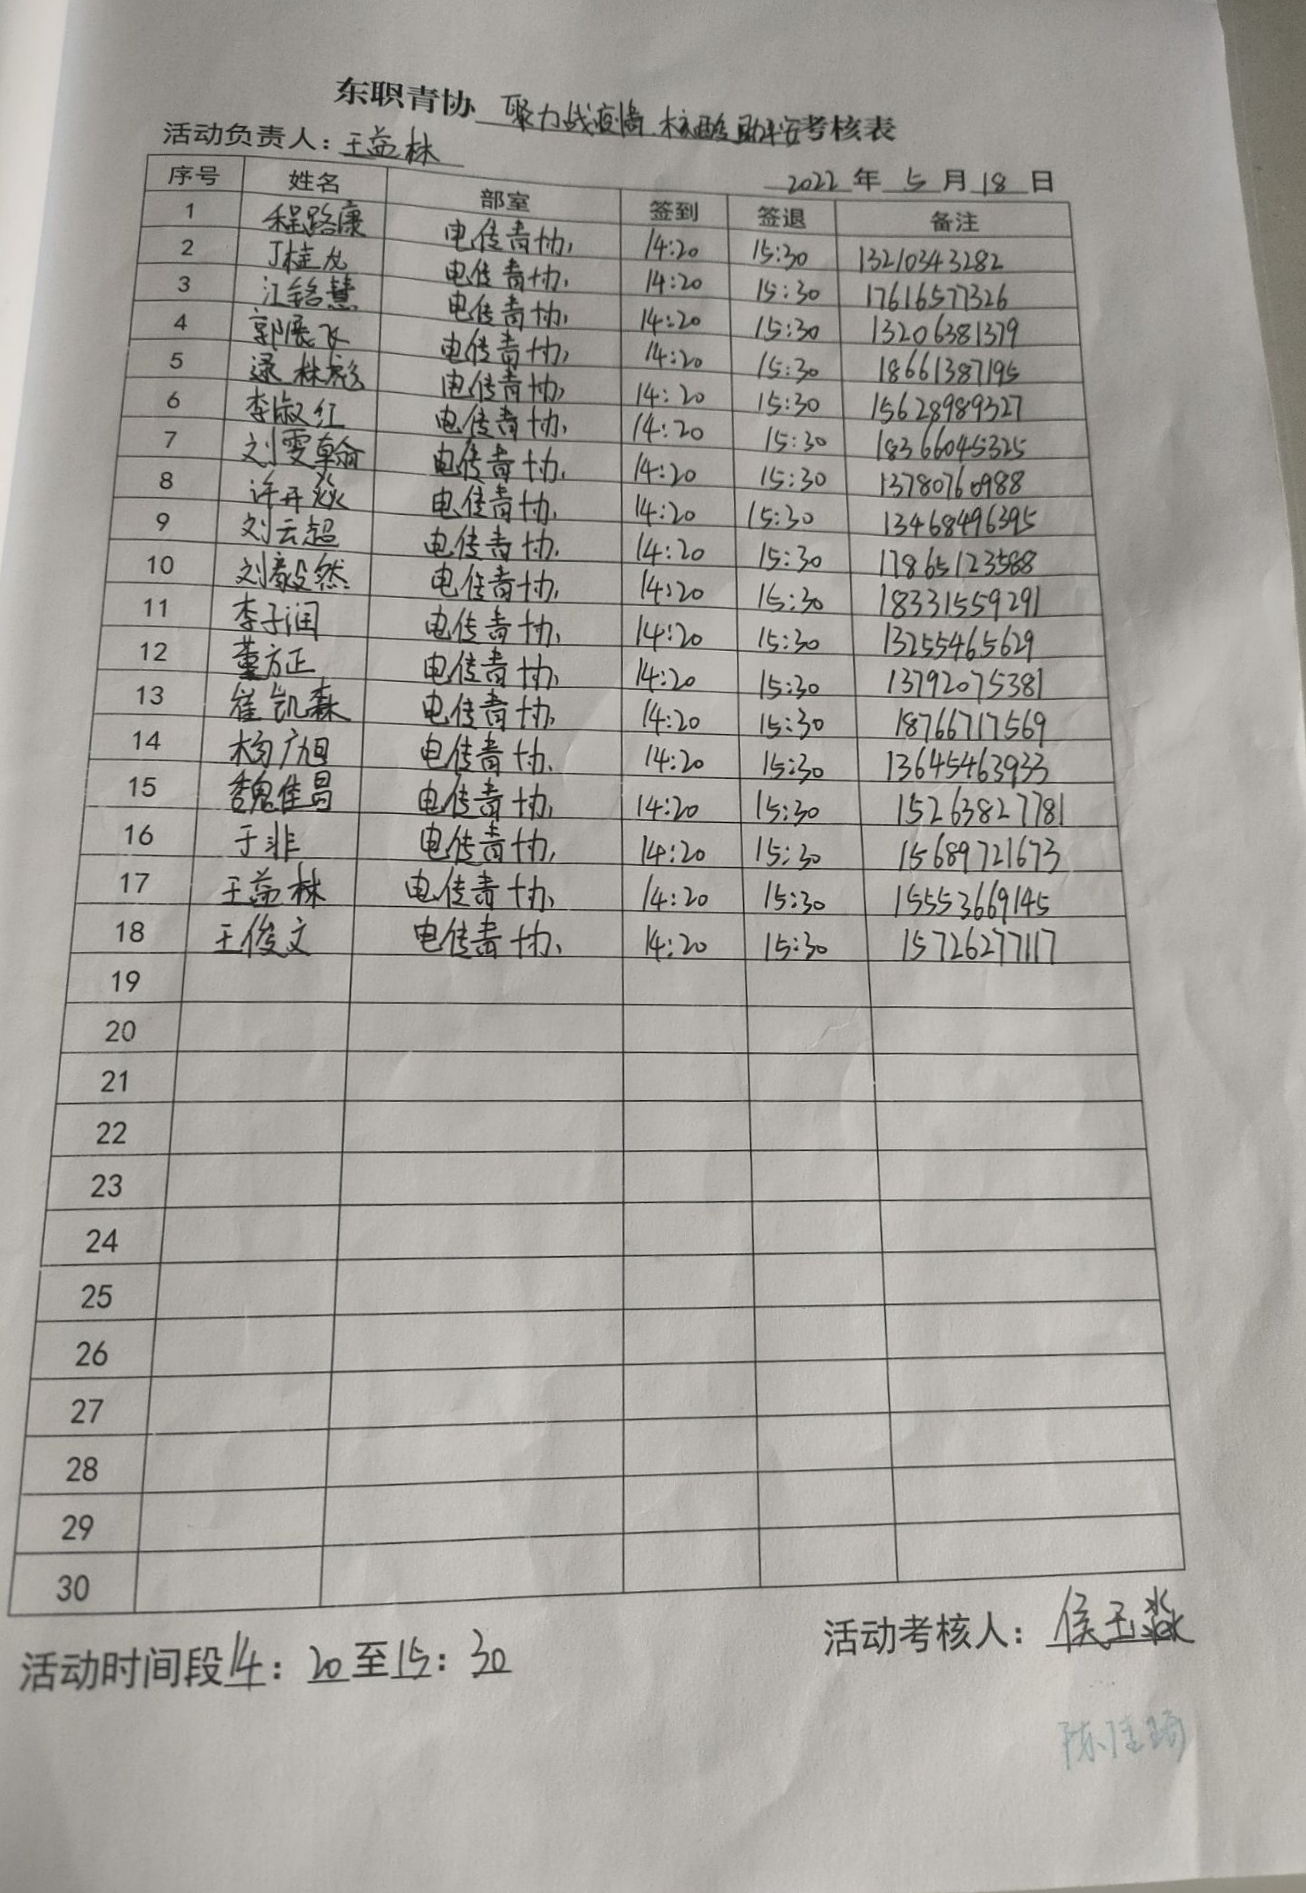 东职青协 聚力战疫情,核酸助平安考核表
活动负责人：王益林
2022 年 5 月 18 日
序号 姓名 部室 签到 签退 备注
1 程路康 电传青协 14:20 15:30 13210343282
2 丁桂龙 电传青协 14:20 15:30 17616577326
3 江铭慧 电传青协 14:20 15:30 13206381379
4 郭展飞 电传青协 14:20 15:30 18661387195
5 逯林彪 电传青协 14:20 15:30 15628989327
6 李淑红 电传青协 14:20 15:30 18366045325
7 刘雯翰 电传青协 14:20 15:30 13780760988
8 许开焱 电传青协 14:20 15:30 13468496395
9 刘云超 电传青协 14:20 15:30 17865123588
10 刘毅然 电传青协 14:20 15:30 18331559291
11 李子润 电传青协 14:20 15:30 13255465629
12 董方正 电传青协 14:20 15:30 13792075381
13 崔凯森 电传青协 14:20 15:30 18766717569
14 杨广旭 电传青协 14:20 15:30 13645463933
15 魏佳昌 电传青协 14:20 15:30 15263827781
16 于非 电传青协 14:20 15:30 15689721673
17 王益林 电传青协 14:20 15:30 15553669145
18 王俊文 电传青协 14:20 15:30 15726277117
19
20
21
22
23
24
25
26
27
28
29
30
活动考核人：侯玉淼
活动时间段14：20至15：30